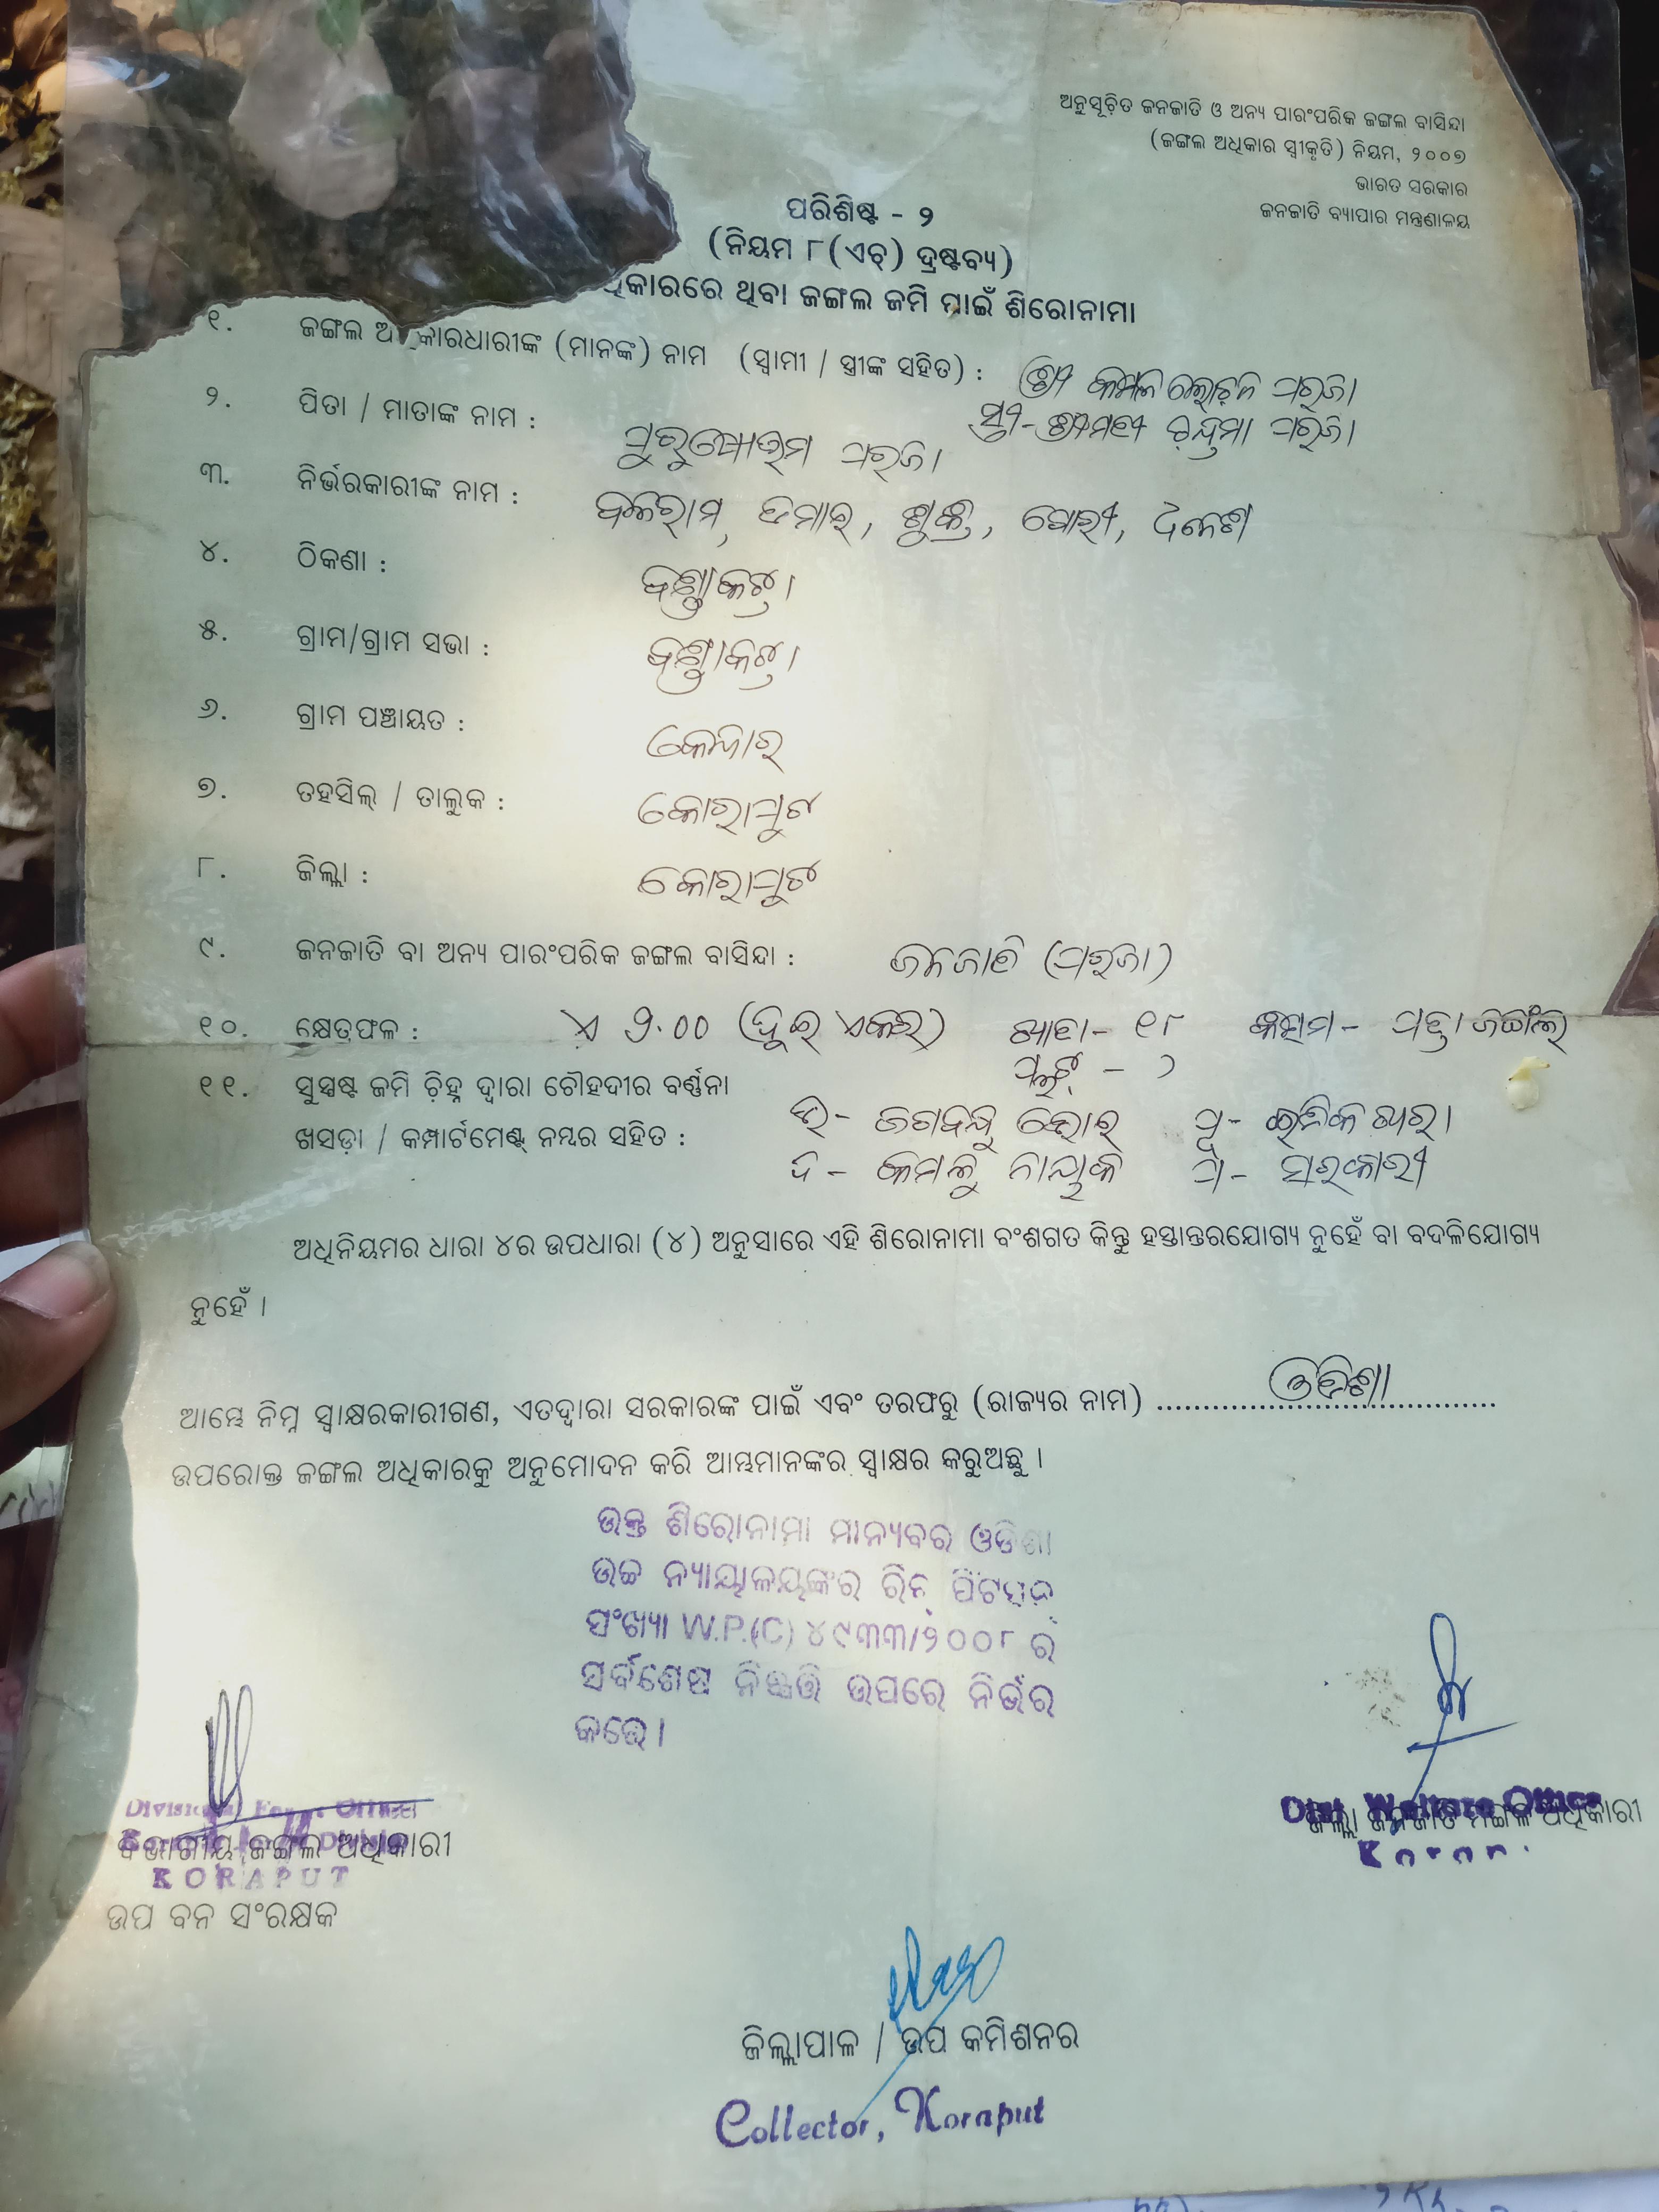 ଅନୁସୂଚିତ ଜନଜାତି ଓ ଅନ୍ୟ ପାରଂପରିକ ଜଙ୍ଗଲ ବାସିନ୍ଦା
(ଜଙ୍ଗଲ ଅଧିକାର ସ୍ୱୀକୃତି) ନିୟମ, ୨୦୦୭
ଭାରତ ସରକାର
ଜନଜାତି ବ୍ୟାପାର ମନ୍ତ୍ରଣାଳୟ
ପରିଶିଷ୍ଟ - ୨
(ନିୟମ ୮(ଏଚ୍) ଦ୍ରଷ୍ଟବ୍ୟ)
ଥିବା ଜଙ୍ଗଲ ଜମି ପାଇଁ ଶିରୋନାମା
୧. ଜଙ୍ଗଲ ଅଧିକାରଧାରୀଙ୍କ (ମାନଙ୍କ) ନାମ (ସ୍ୱାମୀ / ସ୍ତ୍ରୀଙ୍କ ସହିତ) : ଶ୍ରୀ କମଳ ଲୋଚନ ପରଜା
ସ୍ତ୍ରୀ-ଶ୍ରୀମତୀ ଚନ୍ଦ୍ରମା ପରଜା
୨. ପିତା / ମାତାଙ୍କ ନାମ : ପୁରୁଷୋତ୍ତମ ପରଜା
୩. ନିର୍ଭରକାରୀଙ୍କ ନାମ : ବଳିରାମ,
୪. ଠିକଣା :
୫. ଗ୍ରାମ/ଗ୍ରାମ ସଭା :
୬. ଗ୍ରାମ ପଞ୍ଚାୟତ :
୭. ତହସିଲ୍ / ତାଲୁକ : କୋରାପୁଟ
୮. ଜିଲ୍ଲା : କୋରାପୁଟ
୯. ଜନଜାତି ବା ଅନ୍ୟ ପାରଂପରିକ ଜଙ୍ଗଲ ବାସିନ୍ଦା : ଜନଜାତି (ପରଜା)
୧୦. କ୍ଷେତ୍ରଫଳ : ଏ ୨.୦୦ (ଦୁଇ ଏକର) ଖାତା- ୧୮ କିସମ-
ପ୍ଲଟ୍ - ୨
୧୧. ସୁସ୍ପଷ୍ଟ ଜମି ଚିହ୍ନ ଦ୍ୱାରା ଚୌହଦୀର ବର୍ଣ୍ଣନା
ଉ- ଜଗବନ୍ଧୁ ପୂ-
ଖସଡ଼ା / କମ୍ପାର୍ଟମେଣ୍ଟ୍ ନମ୍ବର ସହିତ :
ଦ- କମଳୁ ନାୟକ ପ- ସରକାରୀ
ଅଧିନିୟମର ଧାରା ୪ର ଉପଧାରା (୪) ଅନୁସାରେ ଏହି ଶିରୋନାମା ବଂଶଗତ କିନ୍ତୁ ହସ୍ତାନ୍ତରଯୋଗ୍ୟ ନୁହେଁ ବା ବଦଳିଯୋଗ୍ୟ
ନୁହେଁ ।
ଆମ୍ଭେ ନିମ୍ନ ସ୍ୱାକ୍ଷରକାରୀଗଣ, ଏତଦ୍ୱାରା ସରକାରଙ୍କ ପାଇଁ ଏବଂ ତରଫରୁ (ରାଜ୍ୟର ନାମ) ଓଡ଼ିଶା
ଉପରୋକ୍ତ ଜଙ୍ଗଲ ଅଧିକାରକୁ ଅନୁମୋଦନ କରି ଆମ୍ଭମାନଙ୍କର ସ୍ୱାକ୍ଷର କରୁଅଛୁ ।
ଉକ୍ତ ଶିରୋନାମା ମାନ୍ୟବର ଓଡିଶା
ଉଚ୍ଚ ନ୍ୟାୟାଳୟଙ୍କର ରିଟ୍ ପିଟିସନ୍
ସଂଖ୍ୟା W.P.(C) ୪୯୩୩/୨୦୦୮ ର
ସର୍ବଶେଷ ନିଷ୍ପତ୍ତି ଉପରେ ନିର୍ଭର
କରେ ।
Divisional Forest Officer
ବିଭାଗୀୟ ଜଙ୍ଗଲ ଅଧିକାରୀ
KORAPUT
ଉପ ବନ ସଂରକ୍ଷକ
Dist. Welfare Office
ଜିଲ୍ଲା ଜନଜାତି ମଙ୍ଗଳ ଅଧିକାରୀ
ଜିଲ୍ଲାପାଳ / ଉପ କମିଶନର
Collector, Koraput